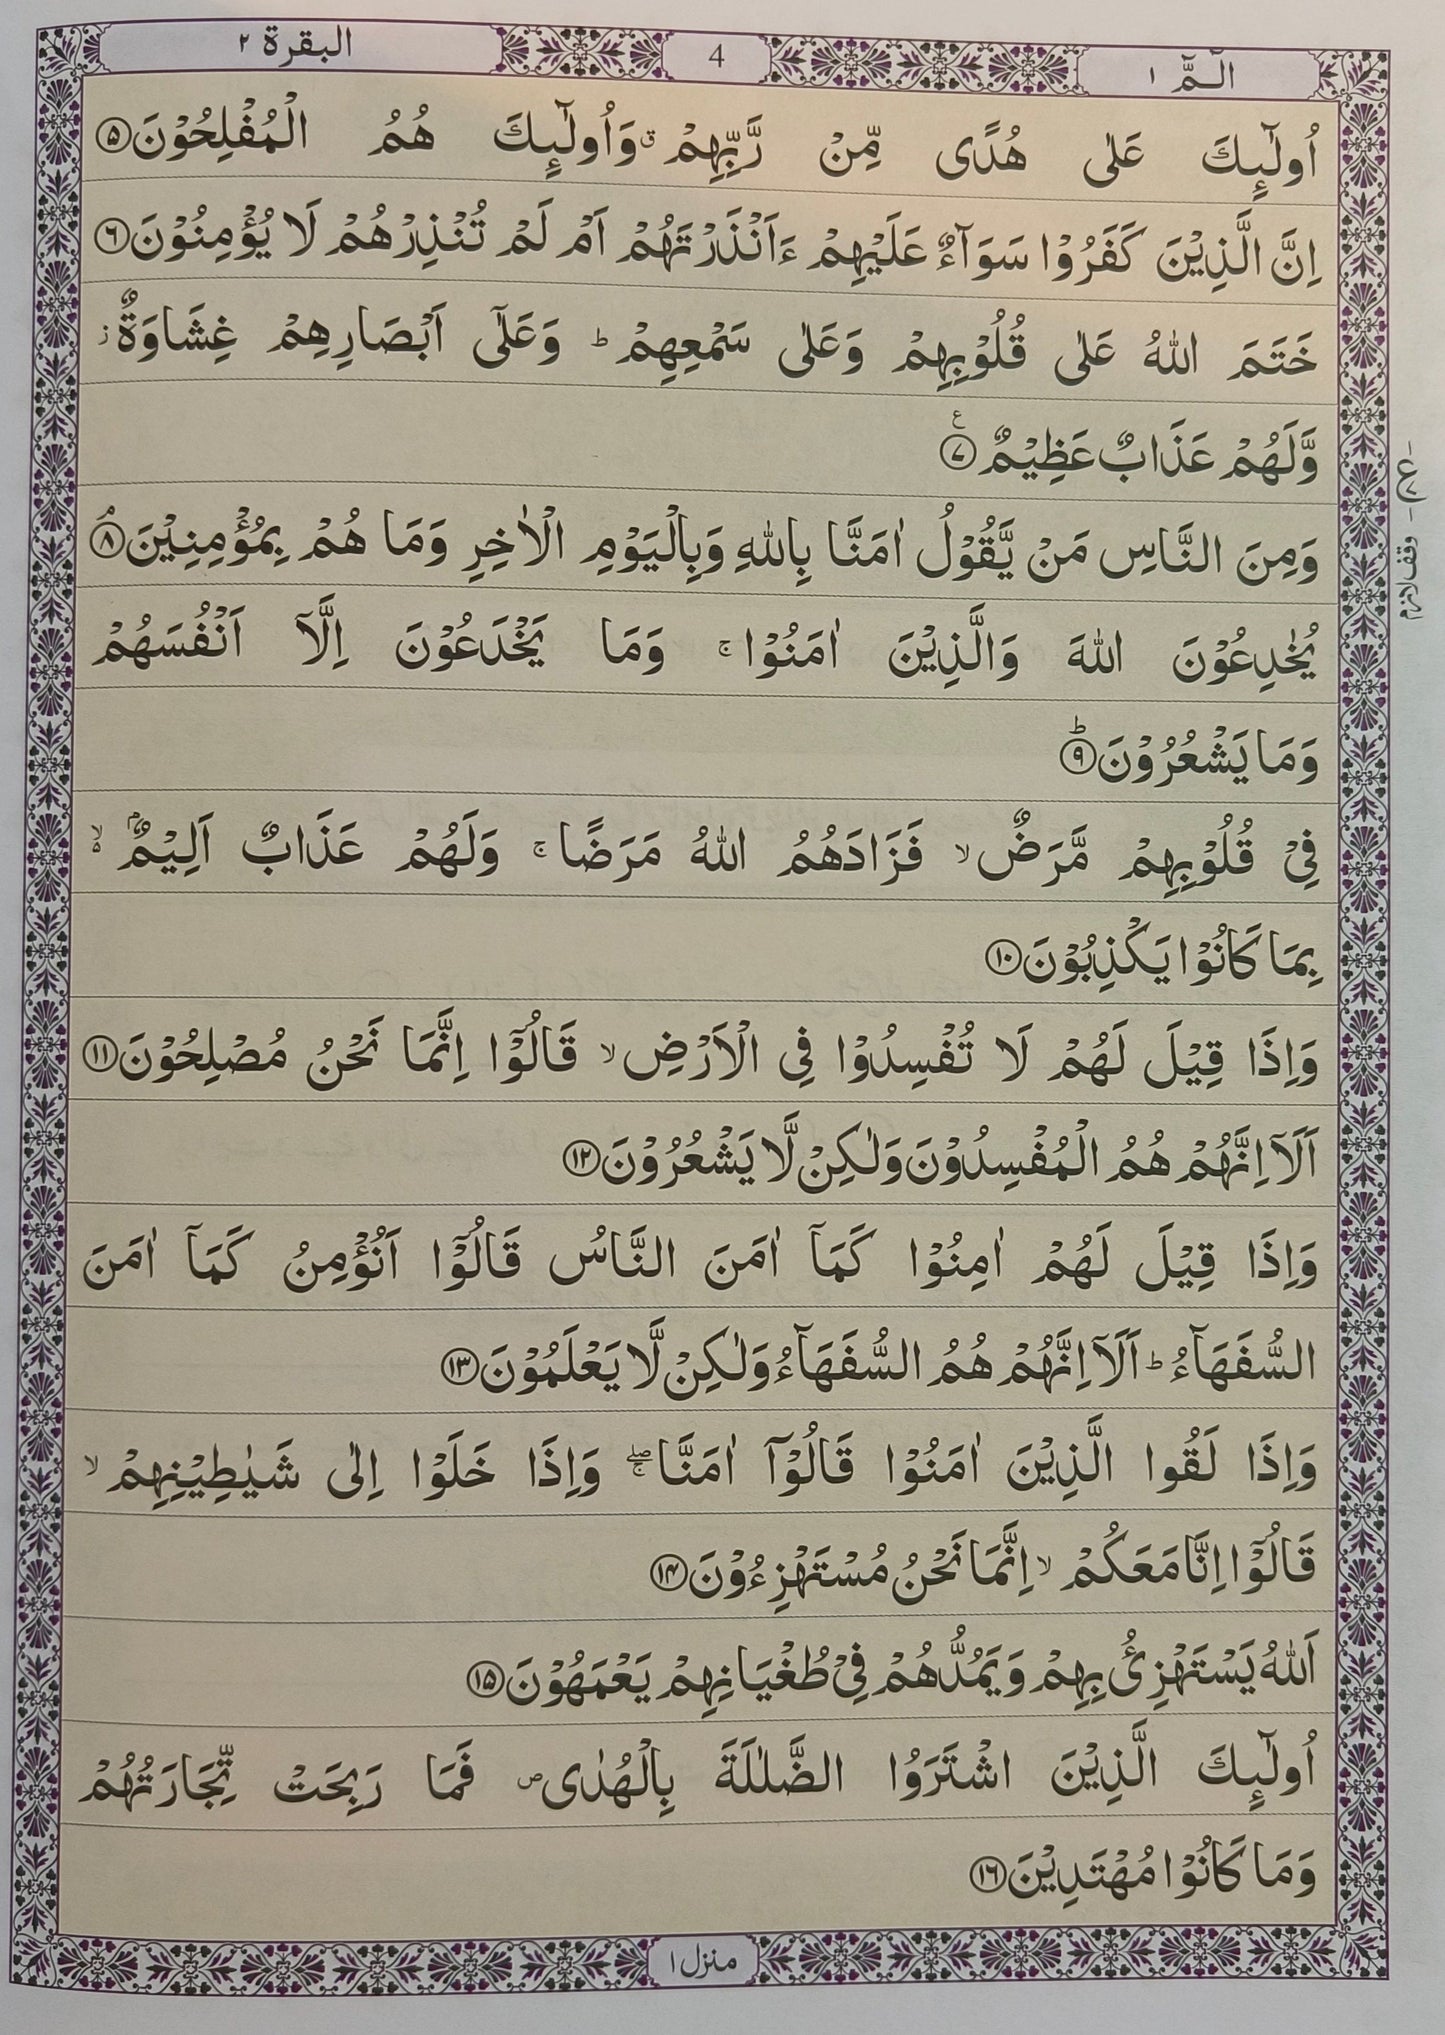 الٓمّٓ ۱
4
البقرة ۲
اُولٰٓئِكَ عَلٰى هُدًى مِّنْ رَّبِّهِمْ ۗ وَاُولٰٓئِكَ هُمُ الْمُفْلِحُوْنَ ۝۵
اِنَّ الَّذِيْنَ كَفَرُوْا سَوَآءٌ عَلَيْهِمْ ءَاَنْذَرْتَهُمْ اَمْ لَمْ تُنْذِرْهُمْ لَا يُؤْمِنُوْنَ ۝۶
خَتَمَ اللهُ عَلٰى قُلُوْبِهِمْ وَعَلٰى سَمْعِهِمْ ؕ وَعَلٰٓى اَبْصَارِهِمْ غِشَاوَةٌ ز
وَّلَهُمْ عَذَابٌ عَظِيْمٌ ۝۷ ع
وَمِنَ النَّاسِ مَنْ يَّقُوْلُ اٰمَنَّا بِاللهِ وَبِالْيَوْمِ الْاٰخِرِ وَمَا هُمْ بِمُؤْمِنِيْنَ ۝۸ۘ
وقف لازم
يُخٰدِعُوْنَ اللهَ وَالَّذِيْنَ اٰمَنُوْا ۚ وَمَا يَخْدَعُوْنَ اِلَّآ اَنْفُسَهُمْ
وَمَا يَشْعُرُوْنَ ۝۹ؕ
فِيْ قُلُوْبِهِمْ مَّرَضٌ ۙ فَزَادَهُمُ اللهُ مَرَضًا ۚ وَلَهُمْ عَذَابٌ اَلِيْمٌۢ ۙ۬
بِمَا كَانُوْا يَكْذِبُوْنَ ۝۱۰
وَاِذَا قِيْلَ لَهُمْ لَا تُفْسِدُوْا فِي الْاَرْضِ ۙ قَالُوْٓا اِنَّمَا نَحْنُ مُصْلِحُوْنَ ۝۱۱
اَلَآ اِنَّهُمْ هُمُ الْمُفْسِدُوْنَ وَلٰكِنْ لَّا يَشْعُرُوْنَ ۝۱۲
وَاِذَا قِيْلَ لَهُمْ اٰمِنُوْا كَمَآ اٰمَنَ النَّاسُ قَالُوْٓا اَنُؤْمِنُ كَمَآ اٰمَنَ
السُّفَهَآءُ ؕ اَلَآ اِنَّهُمْ هُمُ السُّفَهَآءُ وَلٰكِنْ لَّا يَعْلَمُوْنَ ۝۱۳
وَاِذَا لَقُوا الَّذِيْنَ اٰمَنُوْا قَالُوْٓا اٰمَنَّا ۖۚ وَاِذَا خَلَوْا اِلٰى شَيٰطِيْنِهِمْ ۙ
قَالُوْٓا اِنَّا مَعَكُمْ ۙ اِنَّمَا نَحْنُ مُسْتَهْزِءُوْنَ ۝۱۴
اَللهُ يَسْتَهْزِئُ بِهِمْ وَيَمُدُّهُمْ فِيْ طُغْيَانِهِمْ يَعْمَهُوْنَ ۝۱۵
اُولٰٓئِكَ الَّذِيْنَ اشْتَرَوُا الضَّلٰلَةَ بِالْهُدٰى ص فَمَا رَبِحَتْ تِّجَارَتُهُمْ
وَمَا كَانُوْا مُهْتَدِيْنَ ۝۱۶
منزل ۱